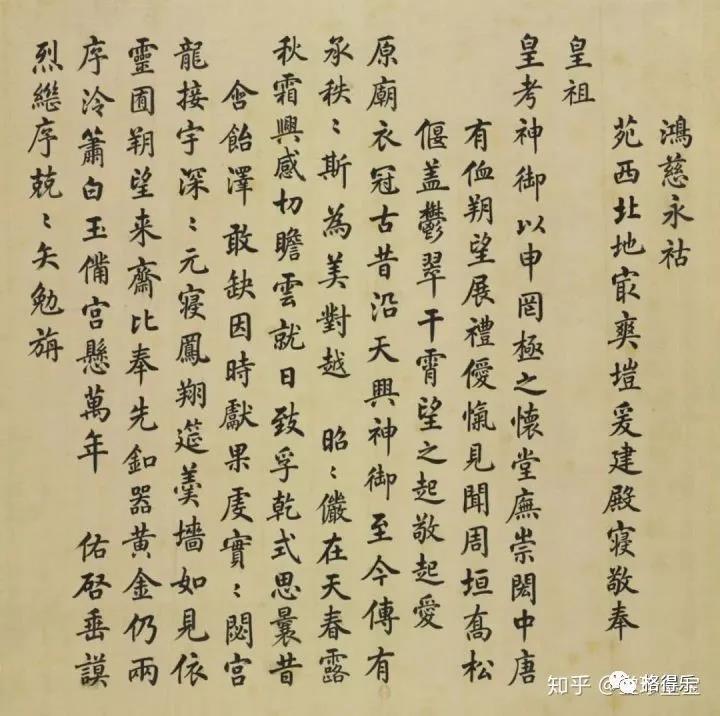 鴻慈永祜
苑西北地㝡爽塏爰建殿寢敬奉
皇祖
皇考神御以申罔極之懷堂廡崇閎中唐
有侐朔望展禮優愾見聞周垣喬松
偃盖鬱翠干霄望之起敬起愛
原廟衣冠古昔沿天興神御至今傳有
承秩〻斯為美對越 昭〻儼在天春露
秋霜興感切瞻雲就日致孚乾式思曩昔
含飴澤敢缺因時獻果虔實〻閟宮
龍接宇深〻元寢鳳翔筵羹墻如見依
靈囿朔望来齋比奉先釦器黃金仍兩
序泠簫白玉備宮懸萬年 佑啓垂謨
烈繼序兢〻矢勉旃
知乎
珞得乐